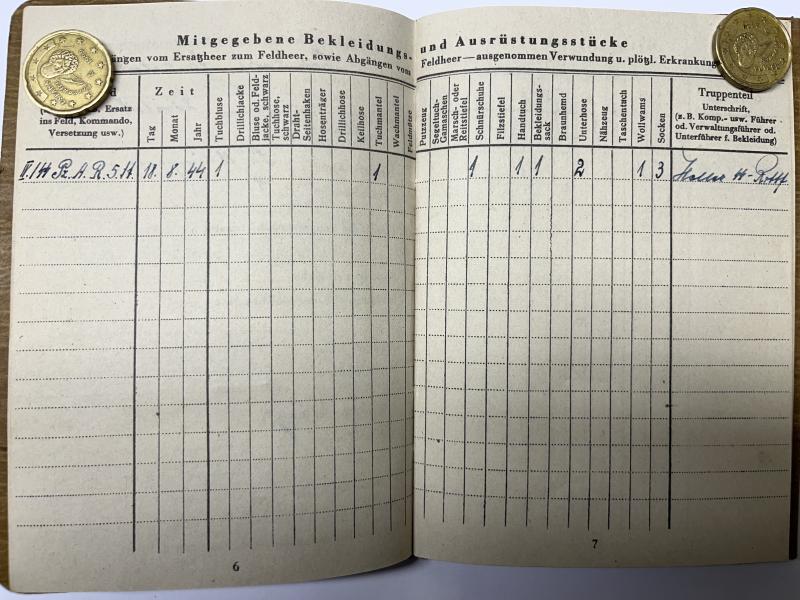 Mitgegebene Bekleidungs- und Ausrüstungsstücke
gängen vom Ersatzheer zum Feldheer, sowie Abgängen vom Feldheer — ausgenommen Verwundung u. plötzl. Erkrankung
Ersatz
ins Feld, Kommando,
Versetzung usw.)
Zeit
Tag
Monat
Jahr
Tuchbluse
Drillichjacke
Bluse od. Feld-
jacke, schwarz
Tuchhose,
schwarz
Draht-
Seitenhaken
Hosenträger
Drillichhose
Keilhose
Tuchmantel
Wachmantel
Feldmütze
Putzzeug
Segeltuch-
Gamaschen
Marsch- oder
Reitstiefel
Schnürschuhe
Filzstiefel
Handtuch
Bekleidungs-
sack
Braunhemd
Unterhose
Nähzeug
Taschentuch
Wollwams
Socken
Truppenteil
Unterschrift,
(z. B. Komp.- usw. Führer
od. Verwaltungsführer od.
Unterführer f. Bekleidung)
Pz. A. R. 5. 18. 8. 44 1 1 1 1 1 2 1 3
6
7